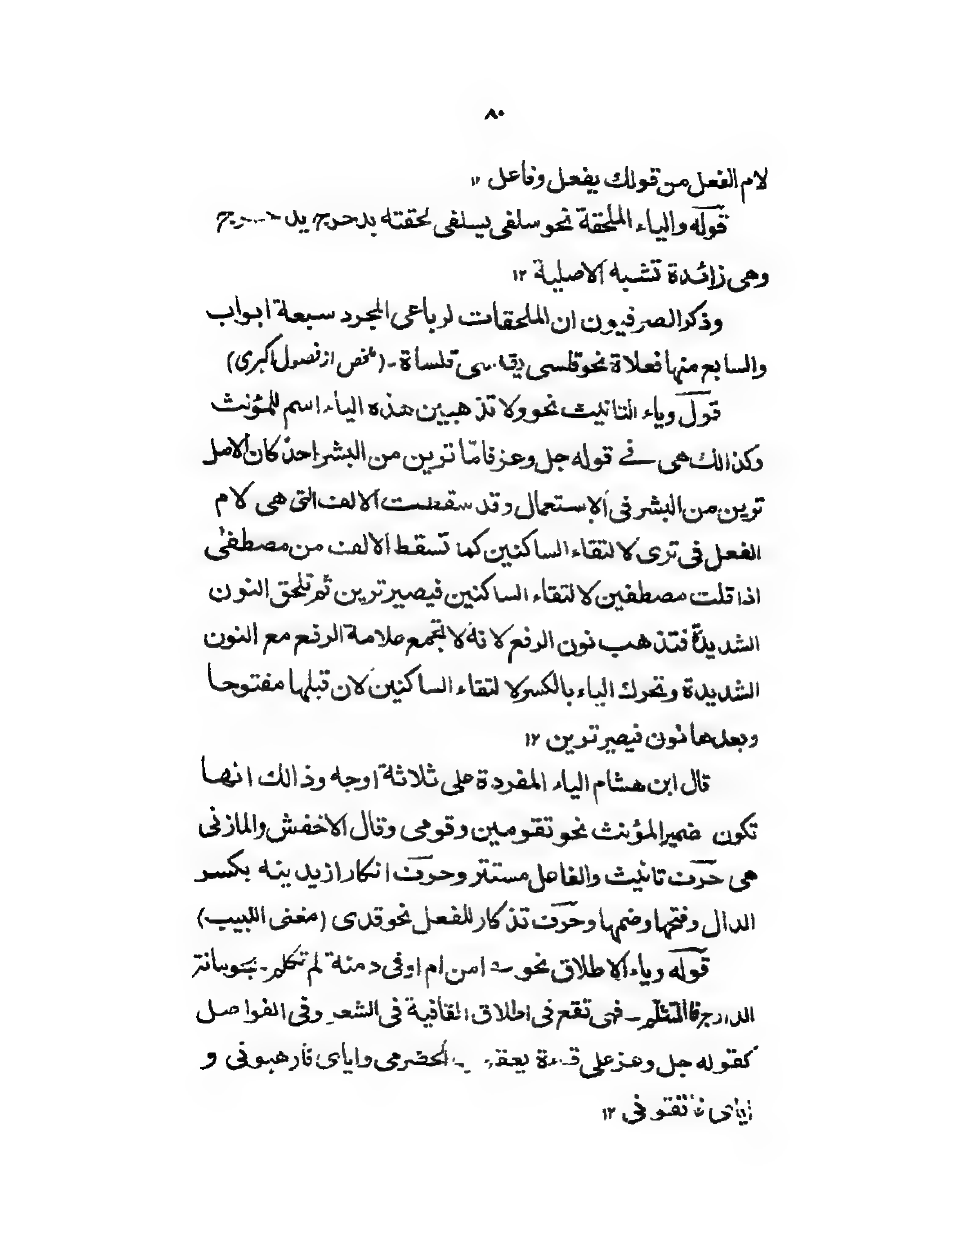 ٨٠
لام الفعل من قولك يفعل وفاعل ١٢
قوله والياء الملحقة نحو سلقى يسلقى لحقته بدحرج
وهى زائدة تشبه الاصلية ١٢
وذكر الصرفيون ان الملحقات لرباعى المجرد سبعة ابواب
والسابع منها فعلاة نحو قلسى قلساة ـ (ملخص از فصول اكبرى)
قوله وياء التانيث نحو ولا تذهبين هذه الياء اسم للمؤنث
وكذالك هى فى قوله جل وعز فامّا ترين من البشر احدًا كان الاصل
ترين من البشر فى الاستعمال وقد سقطت الالف التى هى لام
الفعل فى ترى لالتقاء الساكنين كما تسقط الالف من مصطفىٰ
اذا قلت مصطفين لالتقاء الساكنين فيصير ترين ثم تلحق النون
الشديدة فتذهب نون الرفع لانه لا تجمع علامة الرفع مع النون
الشديدة وتحرك الياء بالكسر لالتقاء الساكنين لان قبلها مفتوحا
وبعدها نون فيصير ترين ١٢
قال ابن هشام الياء المفردة على ثلاثة اوجه وذالك انها
تكون ضمير المؤنث نحو تقومين وقومى وقال الاخفش والمازنى
هى حرف تانيث والفاعل مستتر وحرف انكار ازيدينه بكسر
الدال وفتحها وضمها وحرف تذكار للفعل نحو قدى (مغنى اللبيب)
قوله وياء الاطلاق نحو امن ام اوفى دمنة لم تكلم ـ
فالمتثلم ـ فهى تقع فى اطلاق القافية فى الشعر وفى الفواصل
كقوله جل وعز على الحضرمى واياى فارهبونى و
اياى فاتقونى ١٢